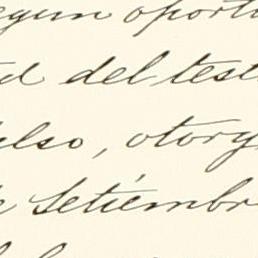 según oportu
d del test
lso, otorg
e Setiémbr